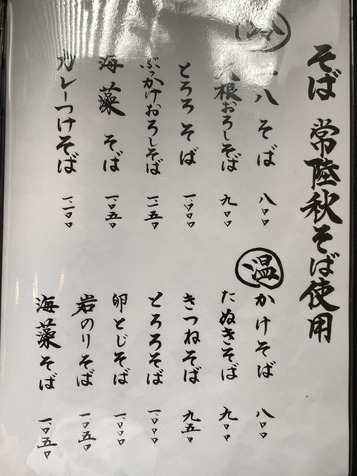 そば 常陸秋そば使用
八そば 八〇〇
根おろしそば 九〇〇
とろろそば 一、〇〇〇
ぶっかけおろしそば
海藻そば 一、〇五〇
カレーつけそば 一、一〇〇
温
かけそば 八〇〇
たぬきそば 九〇〇
きつねそば 九五〇
とろろそば 一、〇〇〇
卵とじそば 一、〇〇〇
岩のりそば 一、〇五〇
海藻そば 一、〇五〇